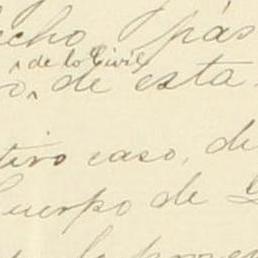 echo pás
de lo Civil
o, de esta
tivo caso, de
Cuerpo de